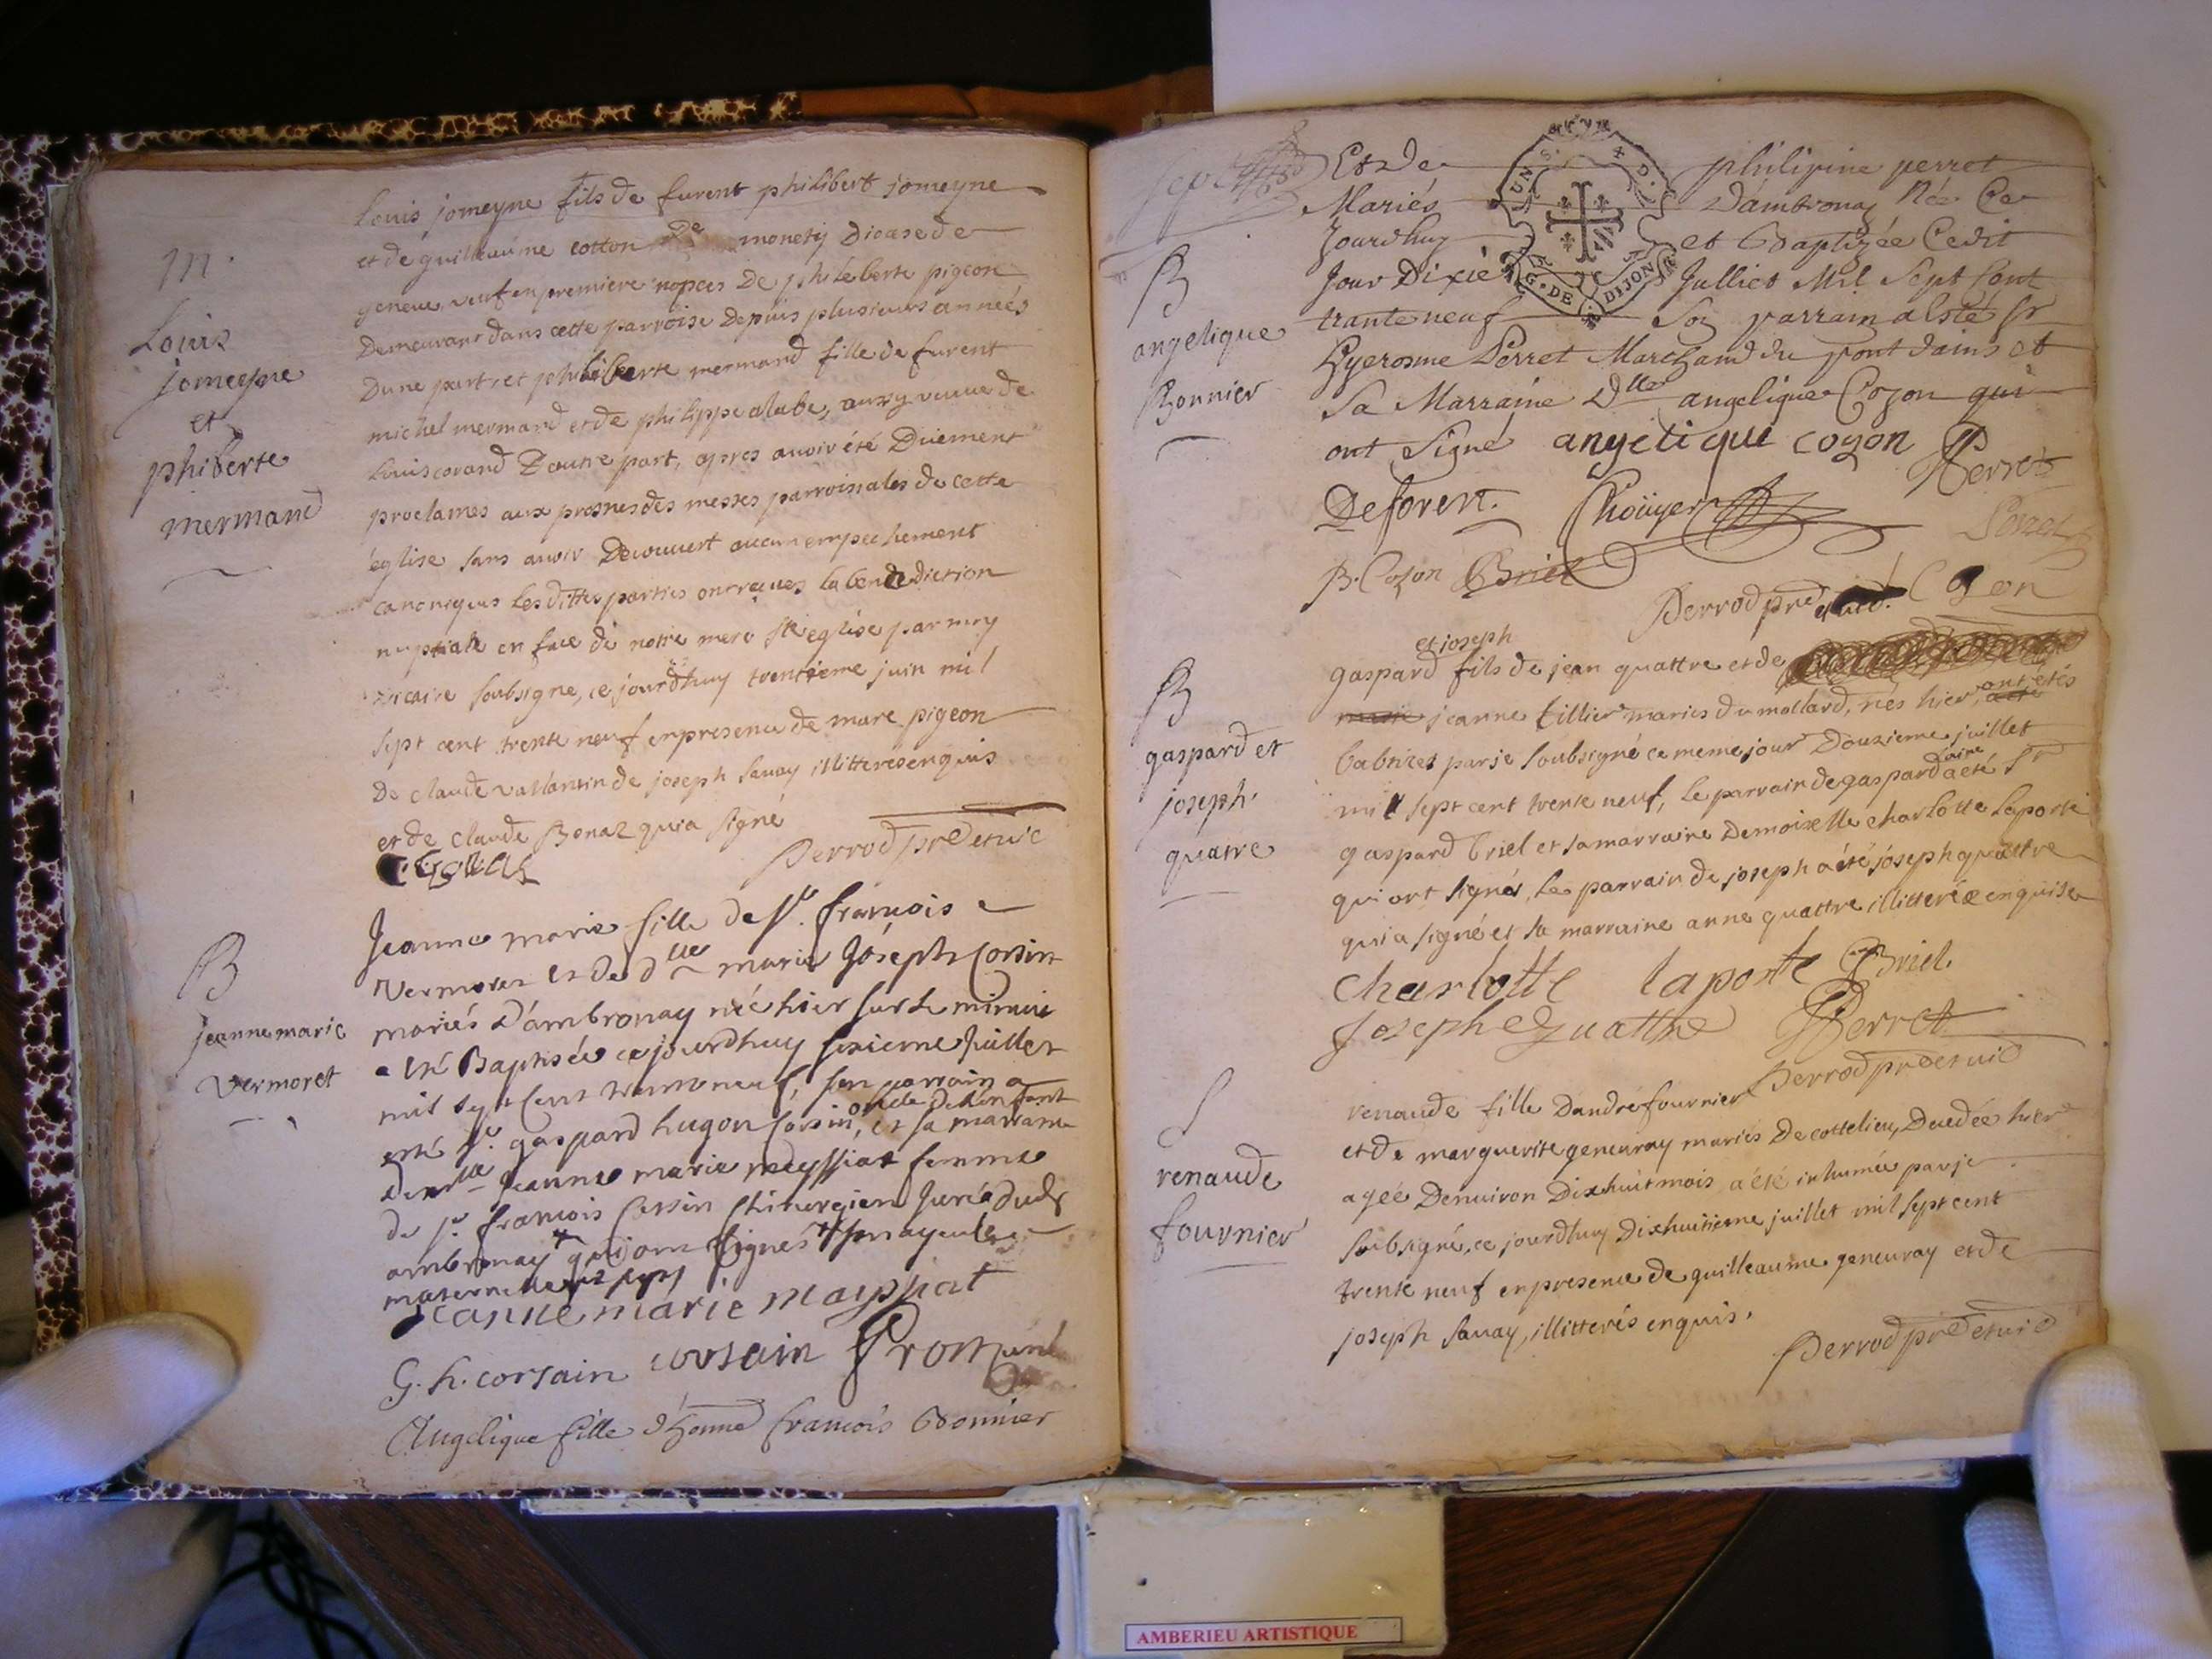 m.
Louis
jomeyne
et
phiberte
mermand
Louis jomeyne fils de furent philibert jomeyne
et de guilleaume cotton De monety Diocese de
geneve, veuf en premiere nopces De phileberte pigeon
Demeurant dans cette parroise Depuis plusieurs années
Dune part, et philiberte mermand fille de furent
michel mermand et de philippe alabe, aussy veuve de
Louis corand D'autre part, apres avoir été Duement
proclames aux prosnes des messes parroissiales de cette
église sans avoir Decouvert aucun empechement
canonique Les dittes parties ont reçues la benediction
nuptiale en face de notre mere ste église par moy
vicaire soubsigne, ce jourd'huy trentieme juin mil
sept cent trente neuf en presence de marc pigeon
De claude vallantin de joseph savay illitteres enquis
et de claude Bonaz qui a signé
Perrod pre et vic
B
jeanne marie
vermoret
Jeanne marie fille de Sr. francois
Vermoret et de dlle marie Joseph Corsin
mariés d'ambronay née hier sur le minuit
a eté Baptisée ce jourdhuy sixieme Juillet
mil sept cent trente neuf, son parrain a
oncle de l'enfant
esté Sr. gaspard hugon Corsin, et sa marraine
demlle Jeanne marie meyssiat femme
de Sr. francois Corsin Chirurgien Juré dud
ambronay + qui ont signés + mayeule
maternelle
jeanne marie mayssiat
G. h. corsain corsain
Angelique fille d'honné francois Bonnier
B
angelique
Bonnier
Et De philipine perret
Mariés D'ambronay Née Ce
Jourdhuy et Baptizée Cedit
Jour Dixié Julliet Mil Sept Cent
trante neuf Son parrain a esté Sr
Hyerosme Perret Marchand du pont dains et
Sa Marraine Dlle angelique Cozon qui
ont Signé angelique cozon Perret
Deforest. Choüyer
B. Cozon Briel
Perrod pre et vic. Cozon
B
gaspard et
joseph
quatre
et joseph
gaspard fils de jean quattre et de
marie jeanne tillier maries du mollard, nés hier, ont etés
babtizes par je soubsigné ce meme jour Douzieme juillet
mil sept cent trente neuf, Le parrain de gaspard a eté Sr
gaspard briel et sa marraine Demoizelle charlotte Laporte
qui ont signés, Le parrain de joseph a été joseph quattre
qui a signé et sa marraine anne quattre illitterée enquise
charlotte laporte Briel
joseph quattre Perret
Perrod pre et vic
S
renaude
fournier
renaude fille Dandré fournier
et de marguerite geneuray mariés De cottelieu, Decedée hier
agée Denviron Dixhuit mois a été inhumée par je
soubsigné, ce jourd'huy Dixhuitieme juillet mil sept cent
trente neuf en presence de guilleaume geneuray et de
joseph savay, illitterés enquis.
Perrod pre et vic
G. DE DIJON
AMBERIEU ARTISTIQUE